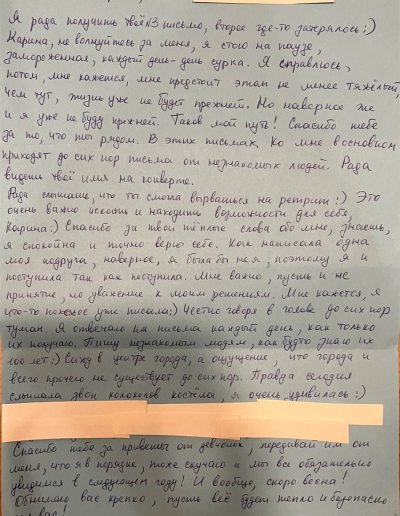 Я рада получить твоё №3 письмо, второе где-то затерялось :)
Карина, не волнуйтесь за меня, я стою на паузе,
замороженная, каждый день - день сурка. Я справлюсь,
потом, мне кажется, мне предстоит этап не менее тяжёлый,
чем тут, жизнь уже не будет прежней. Но наверное же
и я уже не буду прежней. Таков мой путь! Спасибо тебе
за то, что ты рядом. В этих письмах. Ко мне в основном
приходят до сих пор письма от незнакомых людей. Рада
видеть твоё имя на конверте.
Рада слышать, что ты смогла вырваться на ретрит :) Это
очень важно искать и находить возможности для себя,
Карина :) Спасибо за твои тёплые слова обо мне, знаешь,
я спокойна и точно верю себе. Как написала одна
моя подруга, наверное, я была бы не я, поэтому я и
поступила так как поступила. Мне важно, пусть и не
принятие, но уважение к моим решениям. Мне кажется, я
что-то похожее уже писала :) Честно говоря в голове до сих пор
туман. Я отвечаю на письма каждый день, как только
их получаю. Пишу незнакомым людям, как будто знаю их
100 лет :) Сижу в центре города, а ощущение, что города и
всего прочего не существует до сих пор. Правда сегодня
слышала звон колоколов костёла, я очень удивилась :)
Спасибо тебе за приветы от девчонок, передавай им от
меня, что я в порядке, тоже скучаю и мы все обязательно
увидимся в следующем году! И вообще, скоро весна!
Обнимаю вас крепко, пусть всё будет тепло и безопасно
у вас!